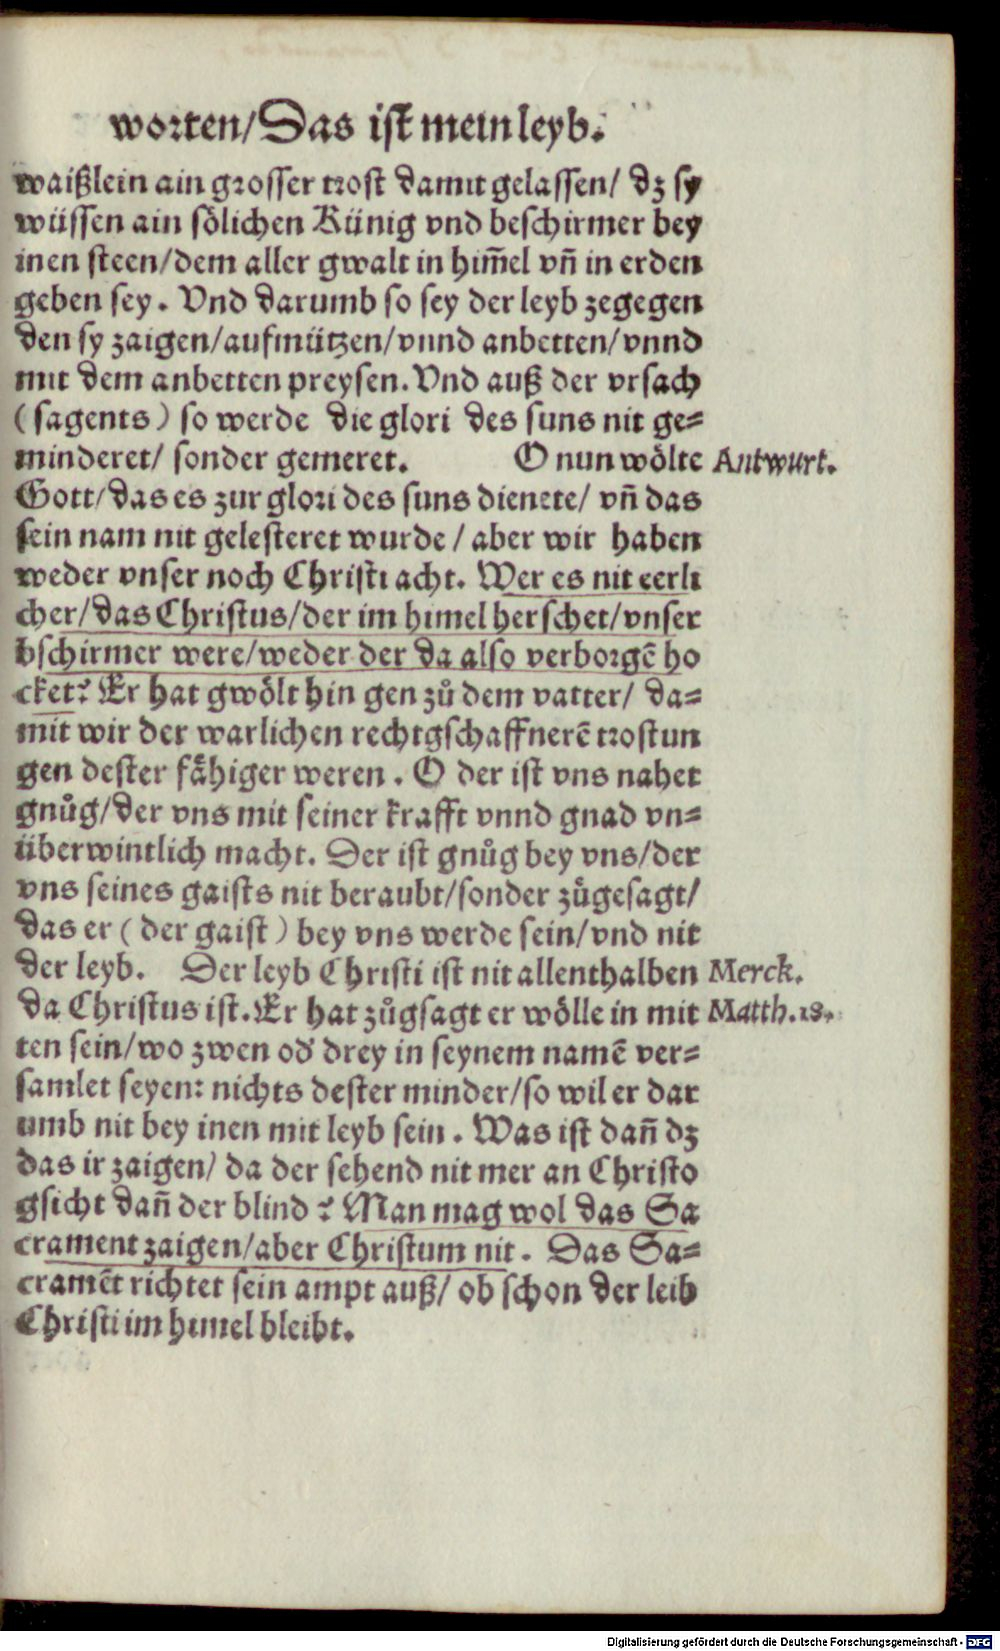 worten/Das ist mein leyb.
waißlein ain grosser trost damit gelassen/ dz sy
wüssen ain sölichen Künig vnd beschirmer bey
inen steen/dem aller gwalt in him̃el vñ in erden
geben sey. Vnd darumb so sey der leyb zegegen
den sy zaigen/aufmützen/vnnd anbetten/vnnd
mit dem anbetten preysen. Vnd auß der vrsach
(sagents) so werde die glori des suns nit ge=
minderet/ sonder gemeret. O nun wölte Antwurt.
Gott/das es zur glori des suns dienete/ vñ das
sein nam nit gelesteret wurde / aber wir haben
weder vnser noch Christi acht. Wer es nit eerli
cher/das Christus/der im himel herschet/vnser
bschirmer were/weder der da also verborgẽ ho
cket? Er hat gwölt hin gen zů dem vatter/ da=
mit wir der warlichen rechtgschaffnerẽ trostun
gen dester fähiger weren. O der ist vns nahet
gnůg/der vns mit seiner krafft vnnd gnad vn=
überwintlich macht. Der ist gnůg bey vns/der
vns seines gaists nit beraubt/sonder zůgesagt/
das er (der gaist) bey vns werde sein/vnd nit
der leyb. Der leyb Christi ist nit allenthalben Merck.
da Christus ist. Er hat zůgsagt er wölle in mit Matth.18.
ten sein/wo zwen od' drey in seynem namẽ ver=
samlet seyen: nichts dester minder/so wil er dar
umb nit bey inen mit leyb sein. Was ist dañ dz
das ir zaigen/ da der sehend nit mer an Christo
gsicht dañ der blind? Man mag wol das Sa
crament zaigen/aber Christum nit. Das Sa=
cramẽt richtet sein ampt auß/ ob schon der leib
Christi im himel bleibt.
Digitalisierung gefördert durch die Deutsche Forschungsgemeinschaft - DFG